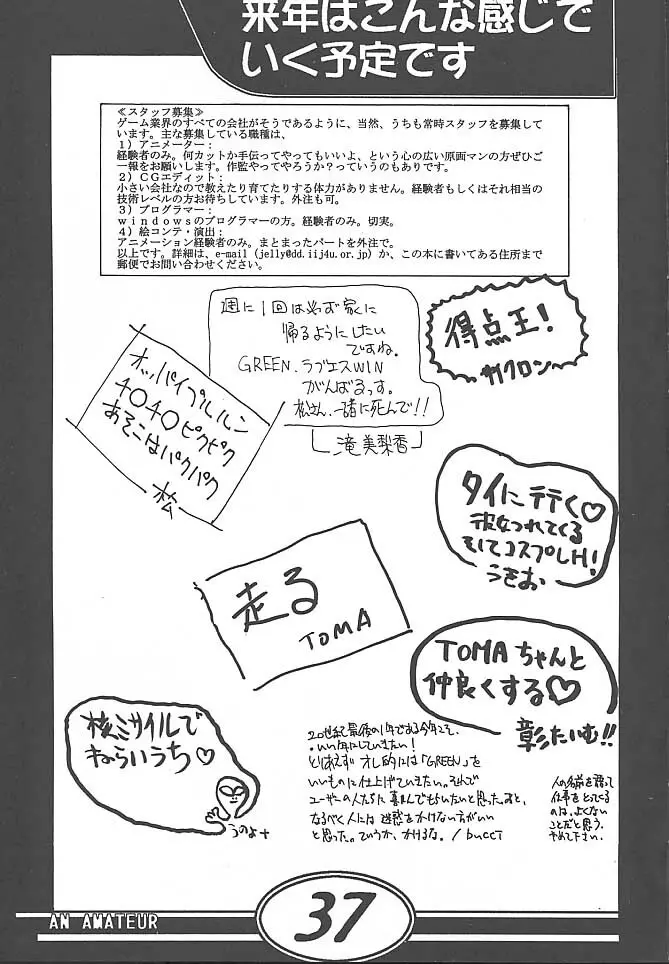 来年はこんな感じで
いく予定です
≪スタッフ募集≫
ゲーム業界のすべての会社がそうであるように、当然、うちも常時スタッフを募集して
います。主な募集している職種は、
1）アニメーター：
経験者のみ。何カットか手伝ってやってもいいよ、という心の広い原画マンの方ぜひご
一報をお願いします。作監やってやろうか？っていうのもありです。
2）CGエディット：
小さい会社なので教えたり育てたりする体力がありません。経験者もしくはそれ相当の
技術レベルの方お待ちしています。外注も可。
3）プログラマー：
windowsのプログラマーの方。経験者のみ。切実。
4）絵コンテ・演出：
アニメーション経験者のみ。まとまったパートを外注で。
以上です。詳細は、e-mail（jelly@dd.iij4u.or.jp）か、この本に書いてある住所まで
郵便でお問い合わせください。
週に1回は必ず家に
帰るようにしたい
ですね。
GREEN、ラブエスWIN
がんばるっす。
松さん、一緒に死んで!!
滝美梨香
得点王!
サイクロン
オッパイプルルン
4040ピクピク
あそこはパクパク
松
タイに行く♡
彼女つれてくる
そしてコスプレH!
うきお
走る
TOMA
TOMAちゃんと
仲良くする♡
彰たいむ!!
核ミサイルで
ねらいうち♡
うのよ+
20世紀最後の1年である今年こそ、
いい年にしていきたい!
とりあえず オレ的には「GREEN」を
いいものに仕上げていきたい。それで
ユーザーの人たちに喜んでもらいたいと思った。あと、
なるべく人には 迷惑をかけない方がいい
と思った。ていうか、かけるな。/bucci
人の名前を語って
仕事をとってくる
のは、よくない
ことだと思う。
やめて下さい。
AN AMATEUR
37